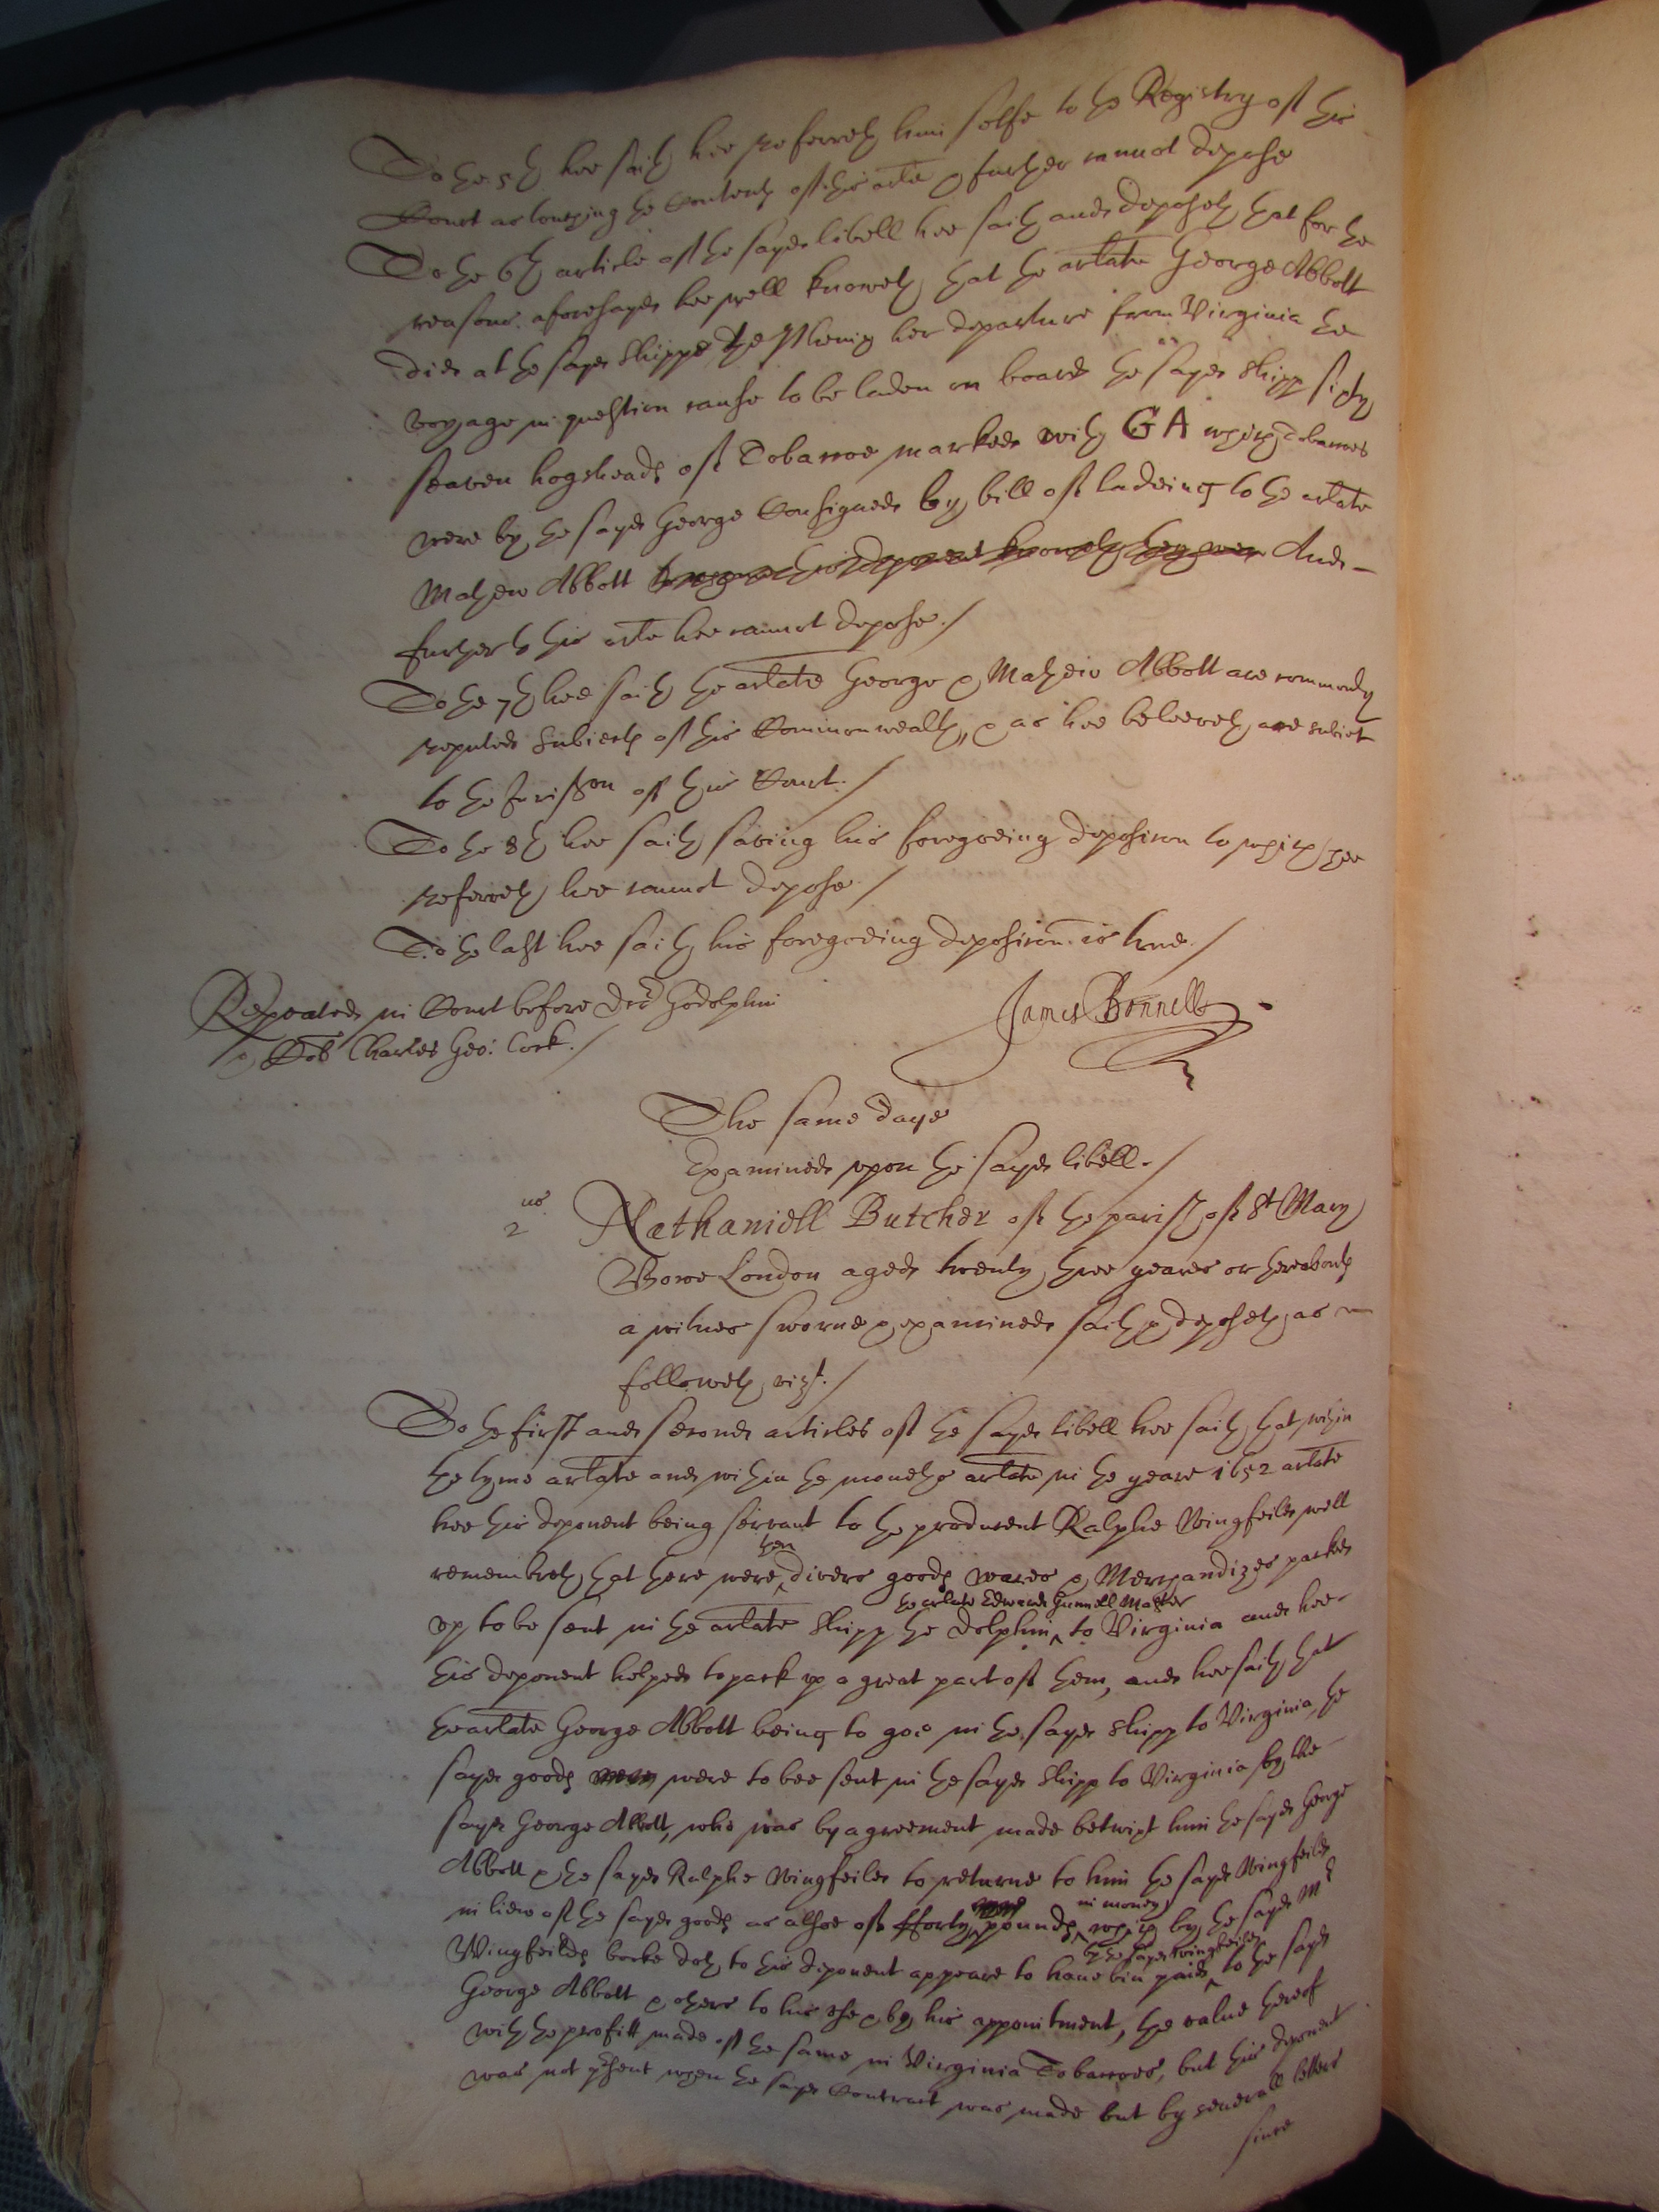 To the 5th hee saith hee referreth him selfe to the Registry of this
Court as touching the Contents of this arte & further cannot depose
To the 6th article of the sayd libell hee saith and deposeth that for the
reasons aforesayd hee well knoweth that the arlate George Abbott
did at the sayd shipps the Phenix her departure from Virginia the
voyage in question cause to be laden on board the sayd shipp sixty
seaven hogsheads of Tobaccoe marked with GA which Tobaccoes
were by the sayd George Consigned by bill of ladeing to the arlate
Mathew Abbott And
further to this arte hee cannot depose./
To the 7th hee saith the arlate George & Mathew Abbott are commonly
reputed subiects of this Commonwealth, & as hee beleeveth are subiect
to the Jurisson of this Court./
To the 8th hee saith saving his foregoeing deposicon to which hee
referreth hee cannot depose./
To the last hee saith his foregoeing deposicon is true./
Repeated in Court before Dcr Godolphin
& Col Charles Geo: Cock./
James Bonnell
The same daye
Examined upon the sayd libell./
2 us
Nathaniell Butcher of the parish of St Mary
Bowe London aged twenty three yeares or thereabouts
a witnes sworne & examined saith & deposeth as
followeth, vizt./
To the first and second articles of the sayd libell hee saith that within
the tyme arlate and within the moneths arlate in the yeare 1652 arlate
hee this deponent being servant to the producent Ralphe Wingfeild well
remembreth that there were then divers goods wares & Merchandizes packed
up to be sent in the arlate shipp the Dolphin the arlate Edward Gunnell Master to Virginia and hee
this deponent helped to pack up a great part of them, and hee saith that
the arlate George Abbott being to goe in the sayd shipp to Virginia, the
sayd goods were to bee sent in the sayd shipp to Virginia by the
sayd George Abbott, who was by agreement made betwixt him the sayd George
Abbott & the sayd Ralphe Wingfeild to returne to him the sayd Wingfeild
in liew of the sayd goods as alsoe of fforty pounds in money which by the sayd Mr
Wingfeilds booke doth to this deponent appeare to have bin paid by the sayd Wingfeild to the sayd
George Abbott & others to his use & by his appointment, the value thereof
with the profitt made of the same in Virginia Tobaccoes, but this deponent
was not present when the sayd Contract was made but by severall letters
since